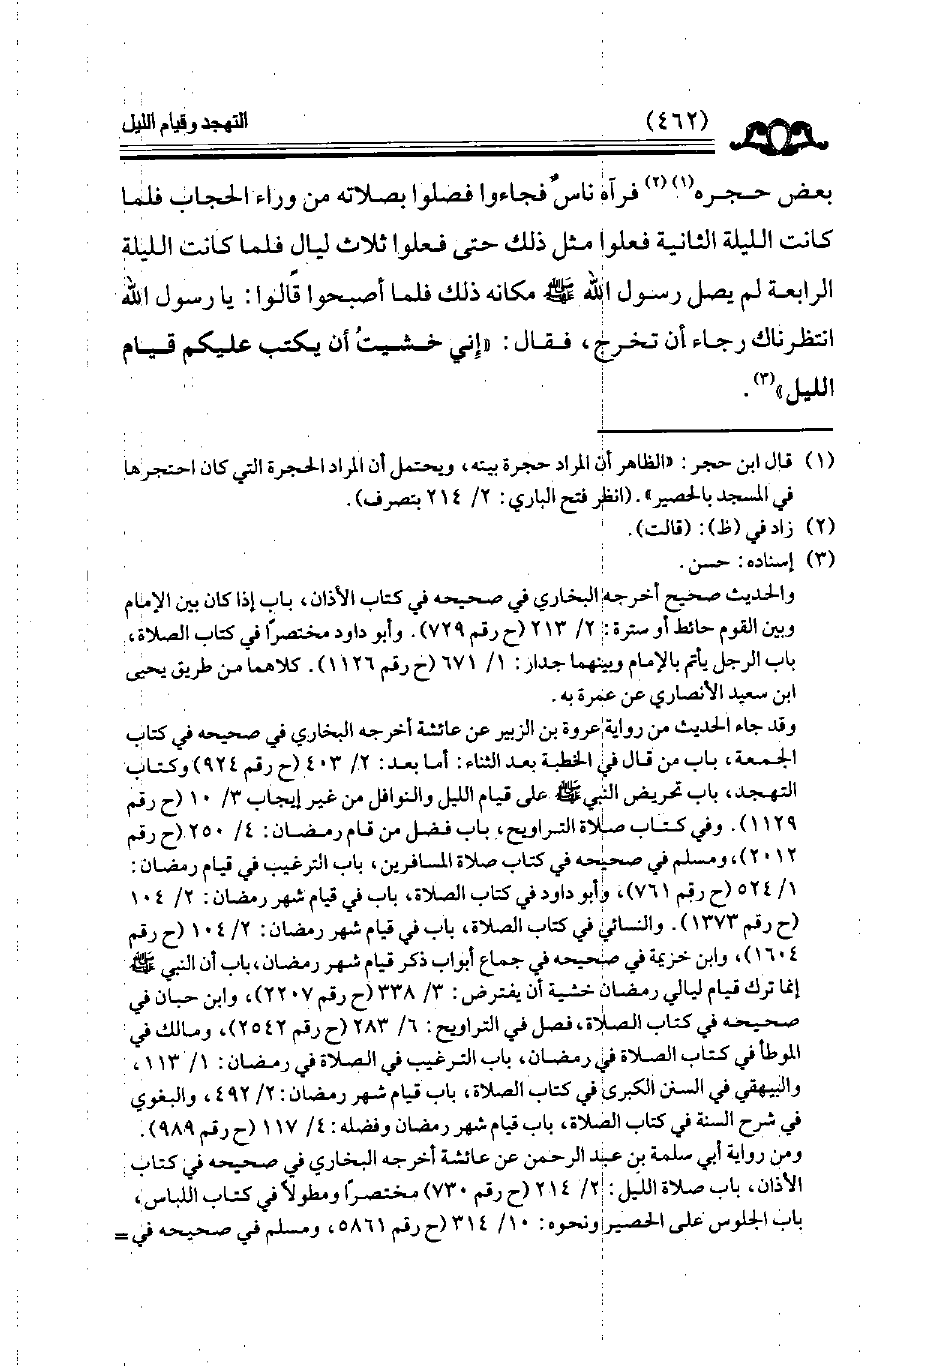 التهجد وقيام الليل (٤٦٢)
بعض حجره(١)(٢) فرآه ناسٌ فجاءوا فصلوا بصلاته من وراء الحجاب فلما
كانت الليلة الثانية فعلوا مثل ذلك حتى فعلوا ثلاث ليال فلما كانت الليلة
الرابعة لم يصل رسول الله ﷺ مكانه ذلك فلما أصبحوا قالوا: يا رسول الله
انتظرناك رجاء أن تخرج، فقال: «إني خشيتُ أن يكتب عليكم قيام
الليل»(٣).
(١) قال ابن حجر: «الظاهر أن المراد حجرة بيته، ويحتمل أن المراد الحجرة التي كان احتجرها
في المسجد بالحصير». (انظر فتح الباري: ٢/ ٢١٤ بتصرف).
(٢) زاد في (ظ): (قالت).
(٣) إسناده: حسن.
والحديث صحيح أخرجه البخاري في صحيحه في كتاب الأذان، باب إذا كان بين الإمام
وبين القوم حائط أو سترة: ٢/ ٢١٣ (ح رقم ٧٢٩). وأبو داود مختصرًا في كتاب الصلاة،
باب الرجل يأتم بالإمام وبينهما جدار: ١/ ٦٧١ (ح رقم ١١٢٦). كلاهما من طريق يحيى
ابن سعيد الأنصاري عن عمرة به.
وقد جاء الحديث من رواية عروة بن الزبير عن عائشة أخرجه البخاري في صحيحه في كتاب
الجمعة، باب من قال في الخطبة بعد الثناء: أما بعد: ٢/ ٤٠٣ (ح رقم ٩٢٤) وكتاب
التهجد، باب تحريض النبي ﷺ على قيام الليل والنوافل من غير إيجاب ٣/ ١٠ (ح رقم
١١٢٩). وفي كتاب صلاة التراويح، باب فضل من قام رمضان: ٤/ ٢٥٠ (ح رقم
٢٠١٢)، ومسلم في صحيحه في كتاب صلاة المسافرين، باب الترغيب في قيام رمضان:
١/ ٥٢٤ (ح رقم ٧٦١)، وأبو داود في كتاب الصلاة، باب في قيام شهر رمضان: ٢/ ١٠٤
(ح رقم ١٣٧٣). والنسائي في كتاب الصلاة، باب في قيام شهر رمضان: ٢/ ١٠٤ (ح رقم
١٦٠٤)، وابن خزيمة في صحيحه في جماع أبواب ذكر قيام شهر رمضان، باب أن النبي ﷺ
إنما ترك قيام ليالي رمضان خشية أن يفترض: ٣/ ٣٣٨ (ح رقم ٢٢٠٧)، وابن حبان في
صحيحه في كتاب الصلاة، فصل في التراويح: ٦/ ٢٨٣ (ح رقم ٢٥٤٢)، ومالك في
الموطأ في كتاب الصلاة في رمضان، باب الترغيب في الصلاة في رمضان: ١/ ١١٣،
والبيهقي في السنن الكبرى في كتاب الصلاة، باب قيام شهر رمضان: ٢/ ٤٩٢، والبغوي
في شرح السنة في كتاب الصلاة، باب قيام شهر رمضان وفضله: ٤/ ١١٧ (ح رقم ٩٨٩).
ومن رواية أبي سلمة بن عبد الرحمن عن عائشة أخرجه البخاري في صحيحه في كتاب
الأذان، باب صلاة الليل: ٢/ ٢١٤ (ح رقم ٧٣٠) مختصرًا ومطولاً في كتاب اللباس،
باب الجلوس على الحصير ونحوه: ١٠/ ٣١٤ (ح رقم ٥٨٦١، ومسلم في صحيحه في =